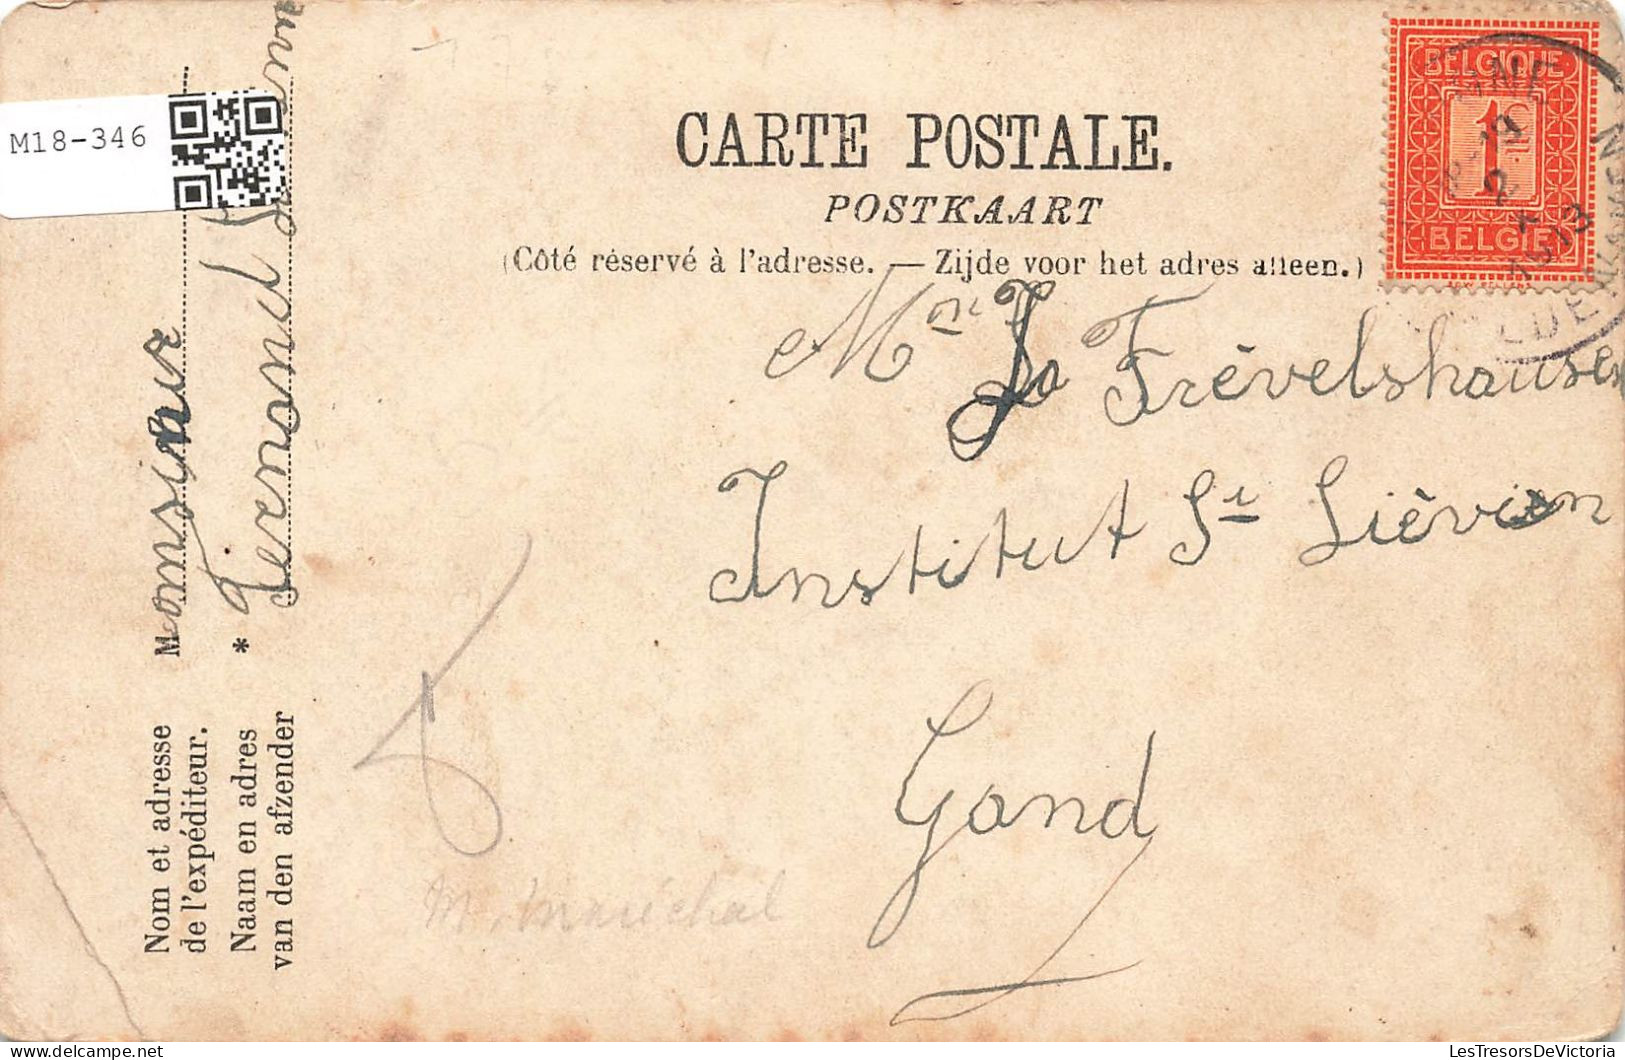 M18-346
CARTE POSTALE.
POSTKAART
(Côté réservé à l'adresse. — Zijde voor het adres alleen.)
BELGIQUE
1 C
BELGIE
Mr Jo Frévelshausen
Institut St Liévin
Gand
M. Maréchal
Monsieur
* Fernand
Nom et adresse
de l'expéditeur.
Naam en adres
van den afzender
LesTresorsDeVictoria